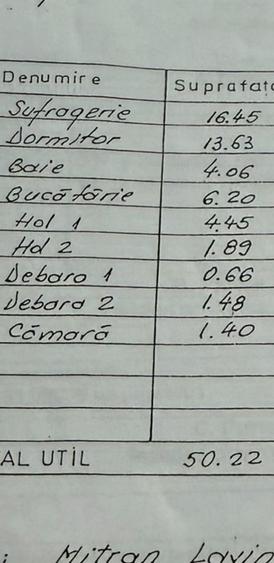 Denumire Suprafața
Sufragerie 16.45
Dormitor 13.63
Baie 4.06
Bucătărie 6.20
Hol 1 4.45
Hol 2 1.89
Debara 1 0.66
Debara 2 1.48
Cămară 1.40
AL UTIL 50.22
Mitran Lavin